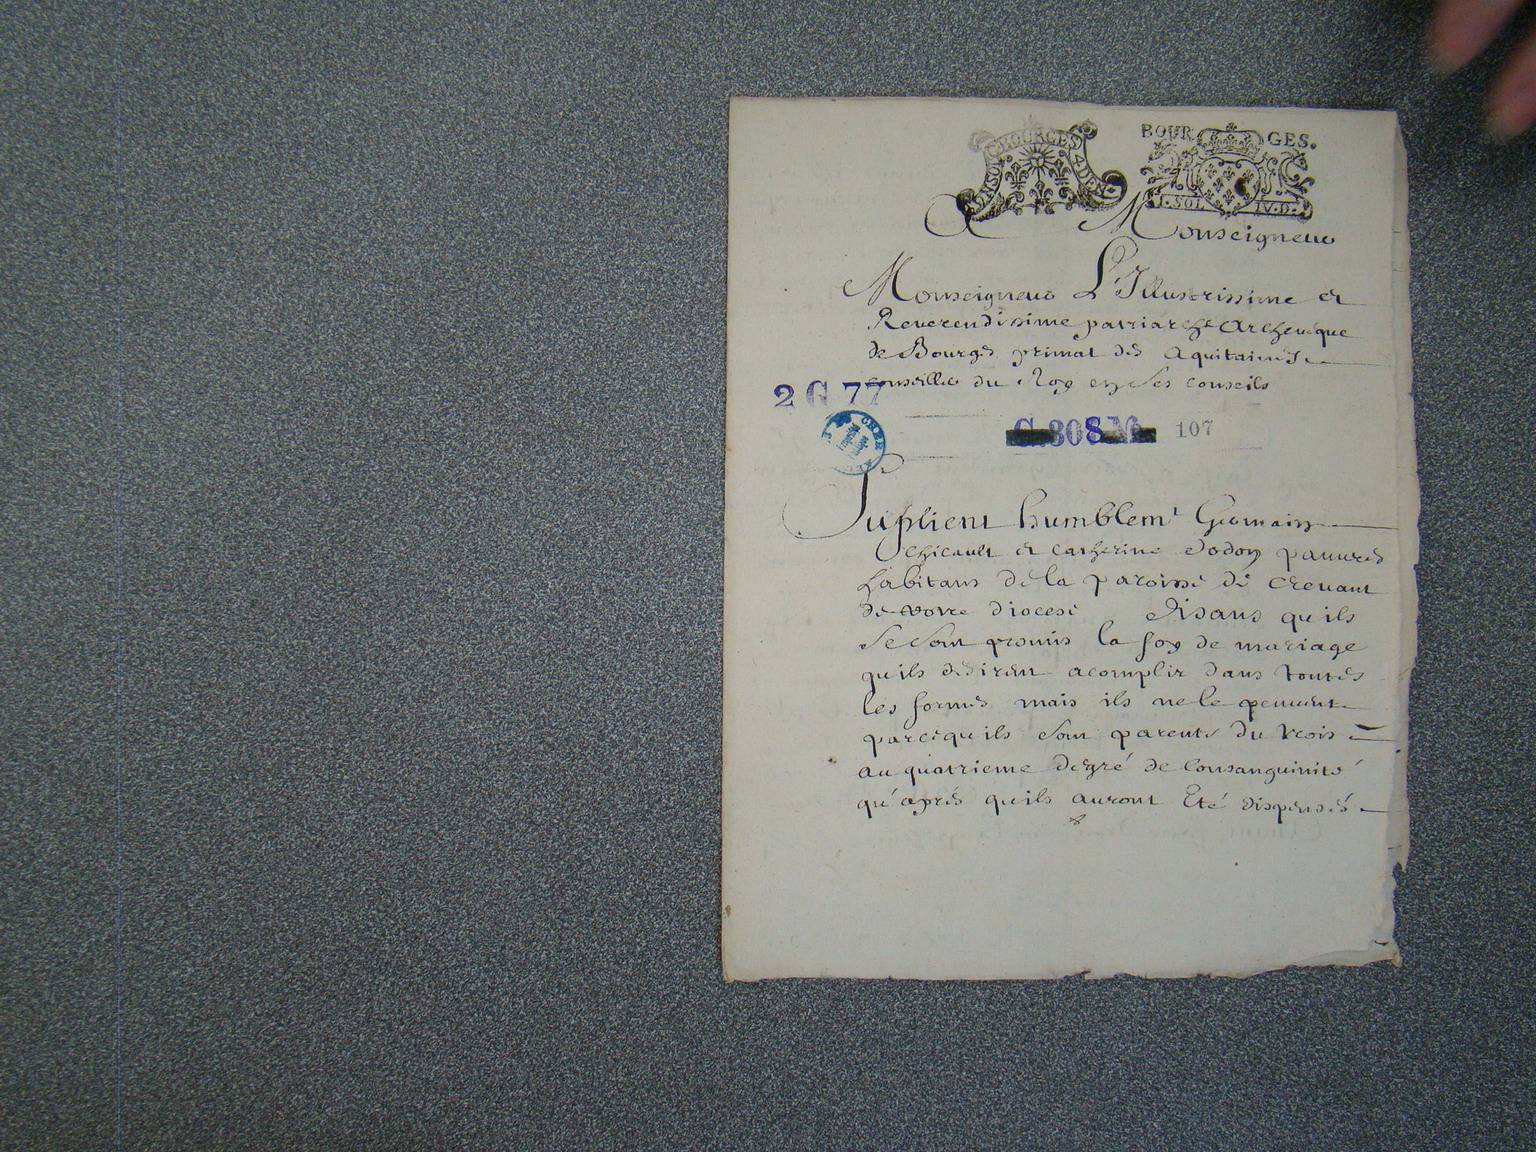 BOURGES
4 DEN.
BOUR GES.
1. SOL IV. D.
A Monseigneur
Monseigneur L'Illustrissime et
Reverendisime patriarche Archeveque
de Bourges primat des Aquitaines
conseiller du Roy en ses conseils
2 G 77
G. 808
107
CHER
Suplient humblemt Germain
Chicault et Catherine dodon pauures
habitans de la paroisse de Creuant
de votre diocese disans quils
se sont promis la foy de mariage
quils desirent acomplir dans toutes
les formes mais ils ne le peuuent
parcequ ils sont parents du trois
au quatrieme degré de Consanguinité
qu'aprés quils auront Eté dispensés